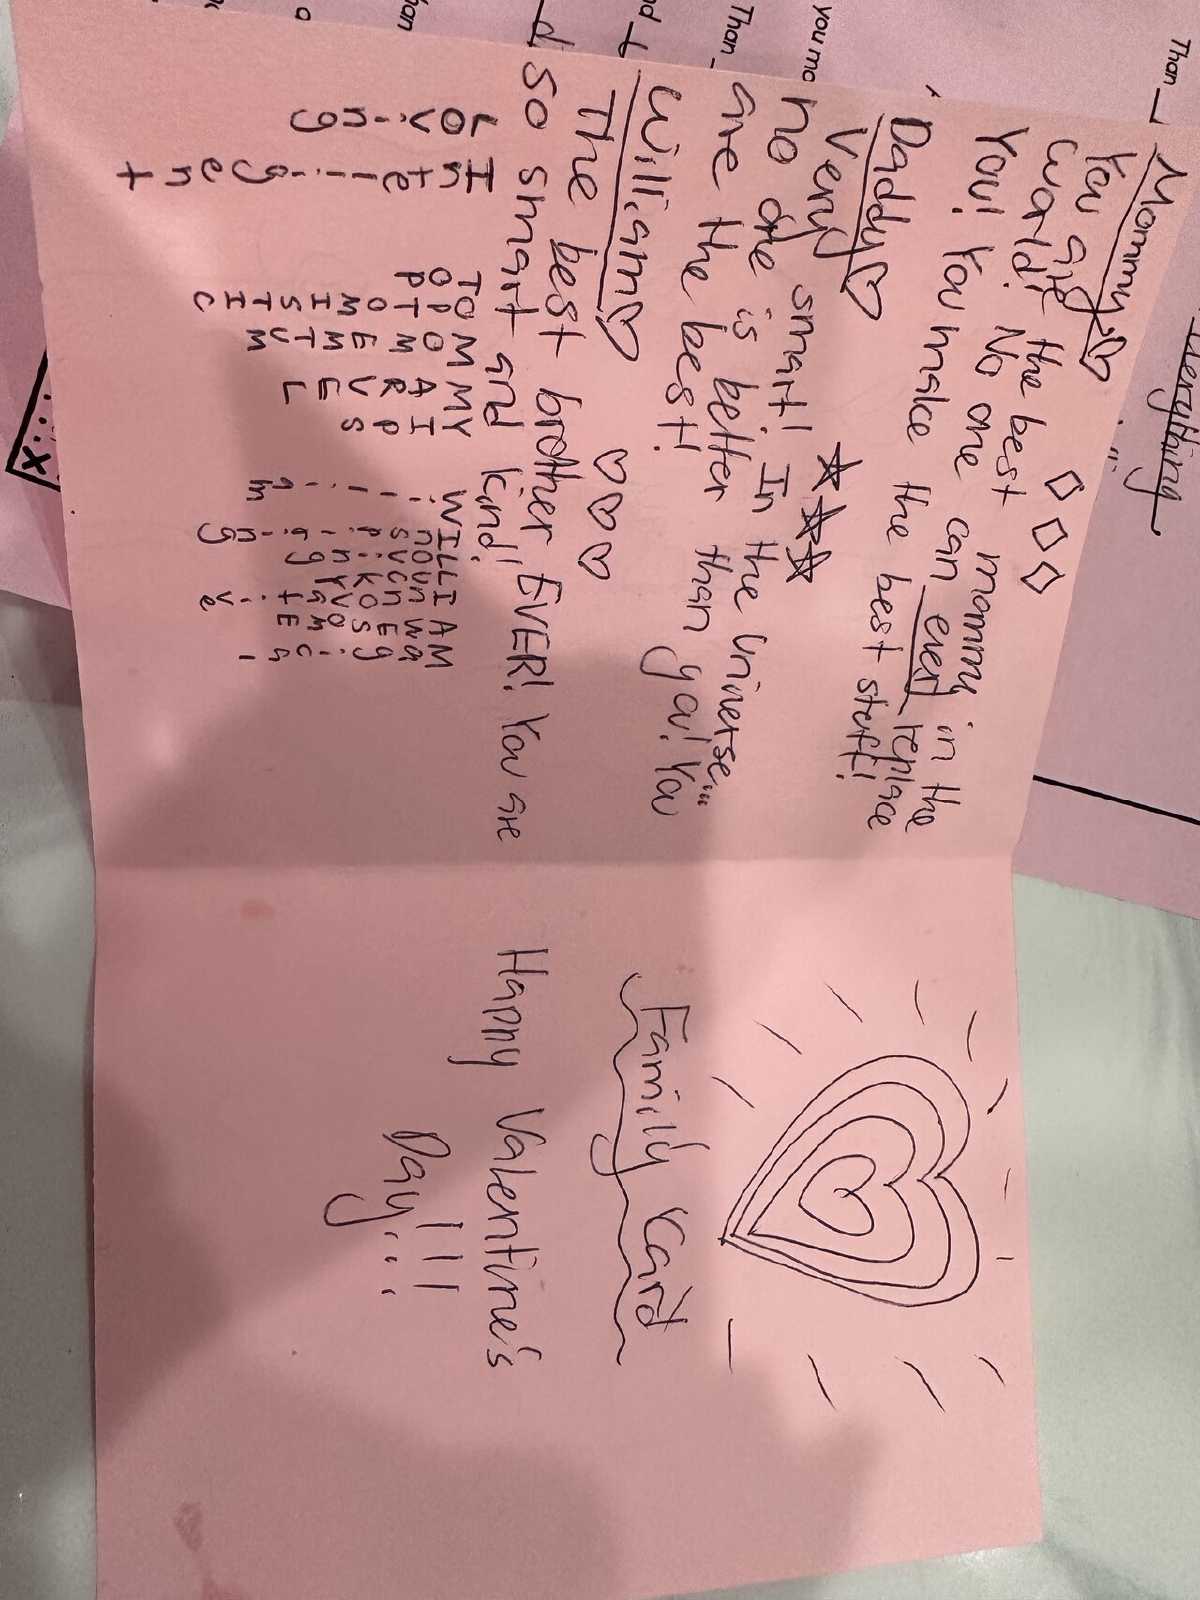 Mommy
You are the best mommy in the
world! No one can ever replace
You! You make the best stuff!
Daddy
Very smart! In the universe...
no one is better than you! You
are the best!
William
The best brother EVER! You are
so smart and kind!
Loving
Intelligent
TOP
OPTOMISTIC
MOMEMTUM
MARVEL
WILLIAM
Family Card
Happy Valentine's
Day!!!
Than
Than
everything